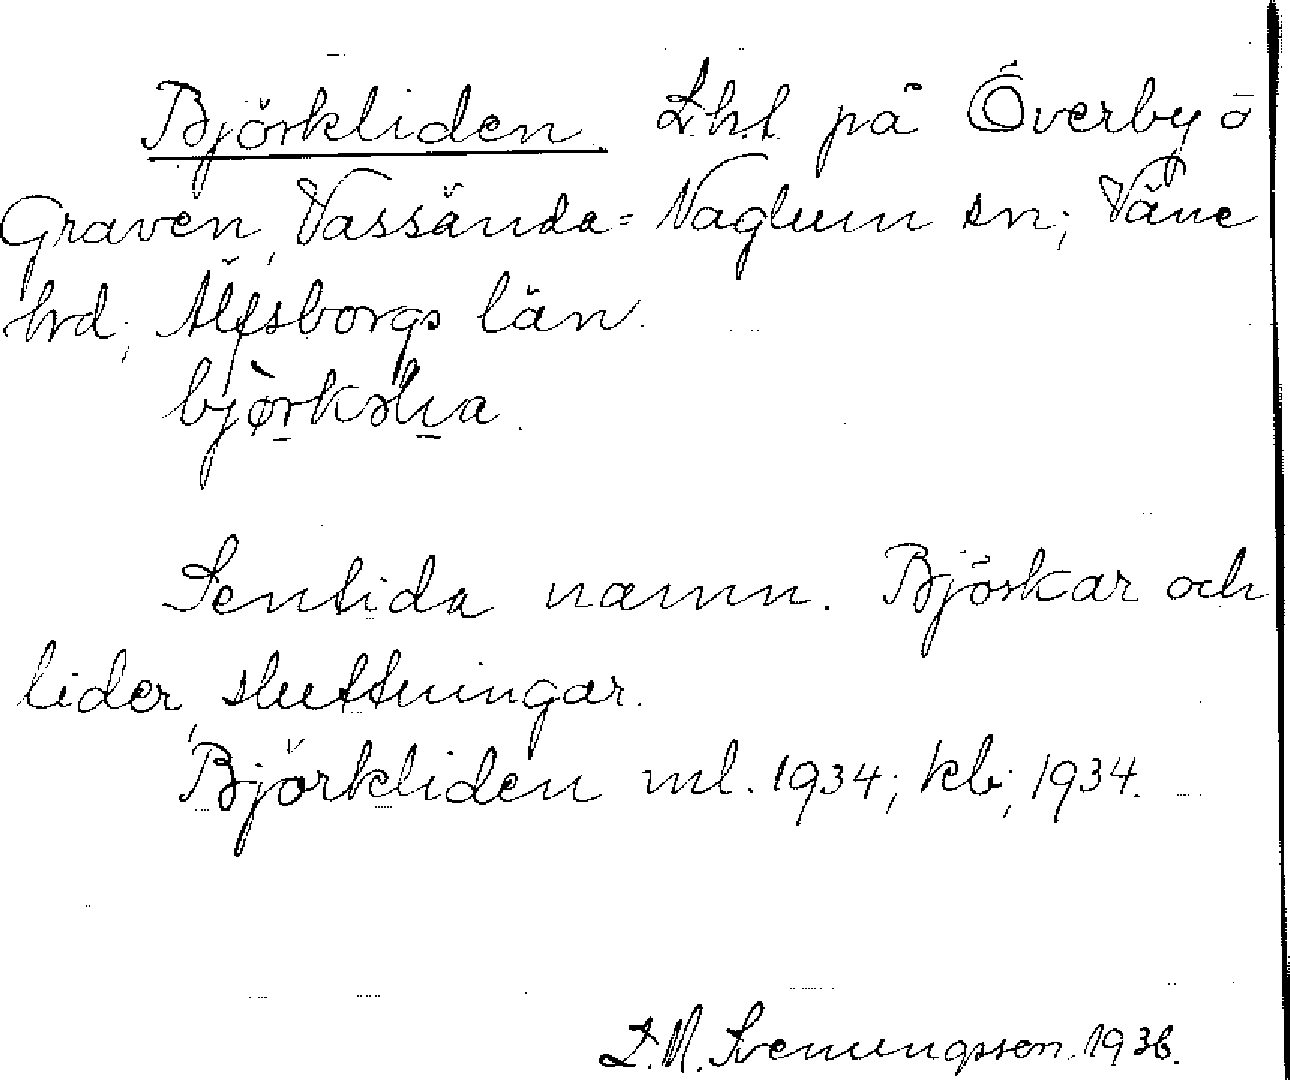 Björkliden. Lht. på Överby å
Graven, Vassända=Naglum sn; Väne
hrd; Älfsborgs län.
Sentida namn. Björkar och
lider, sluttningar.
Björkliden ml. 1934; kb; 1934.
1936.